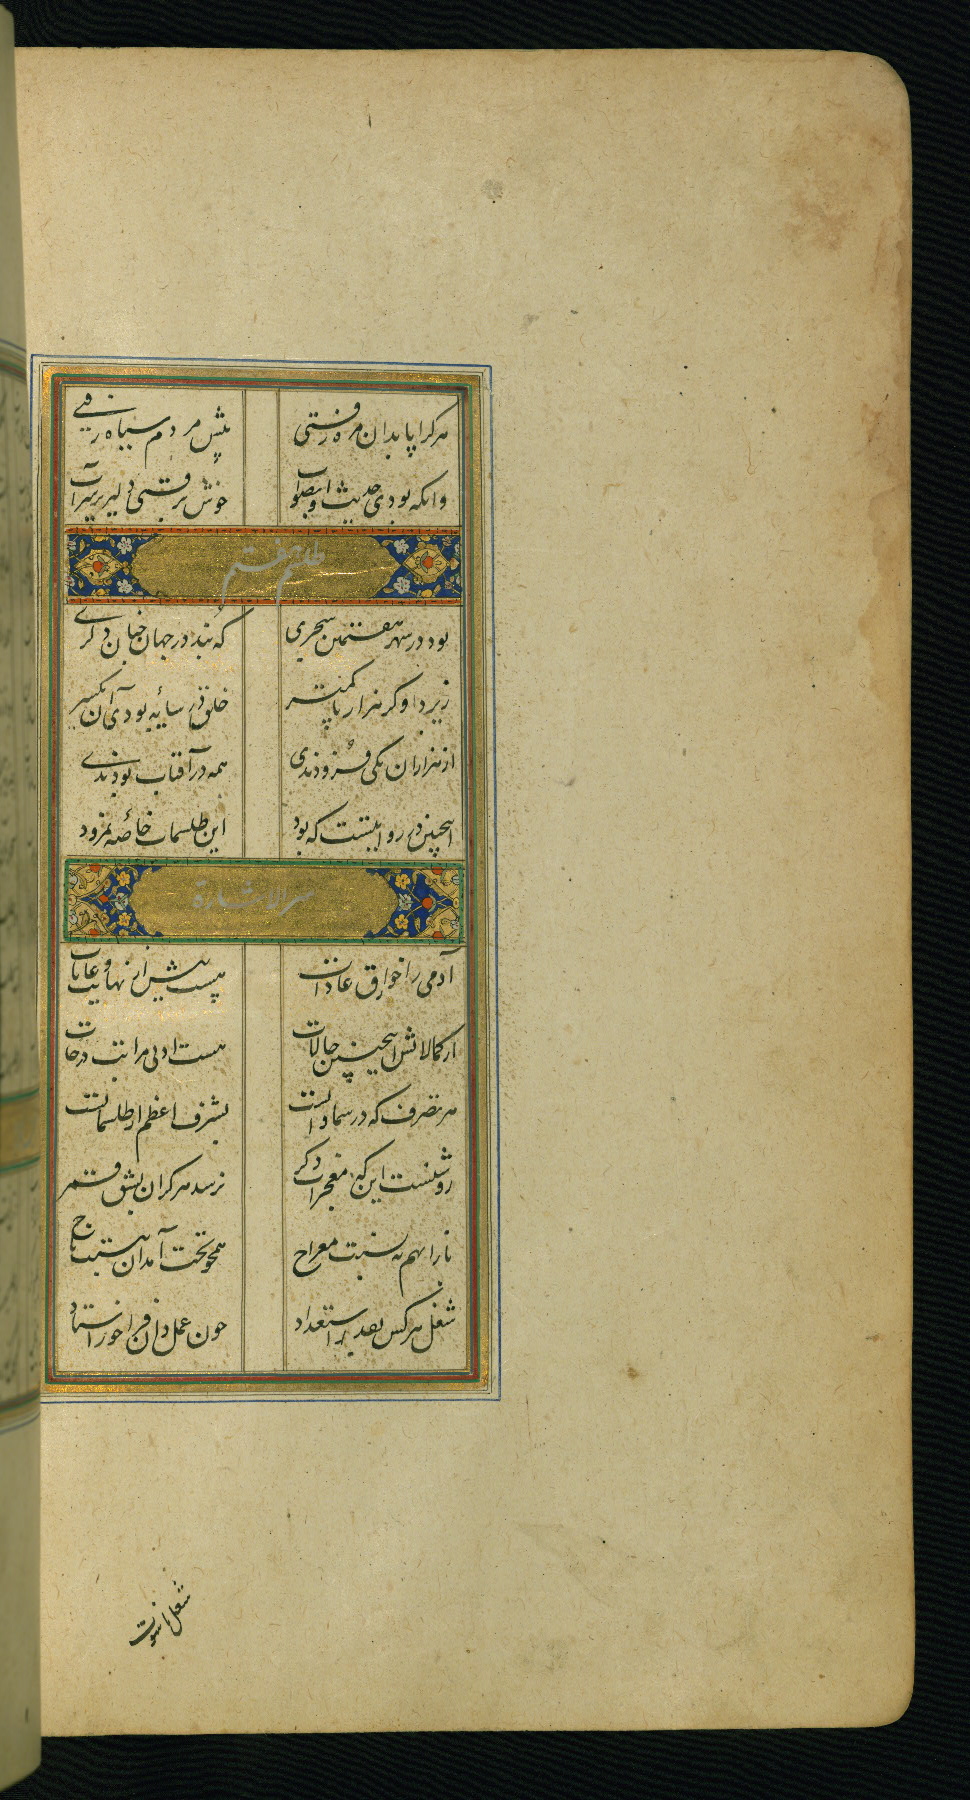 هرکرا پا بدان مره رفتی پیش مردم سیاه رو رفتی
وانکه بودی حدیث او بصواب خوش برفتی دلیر بر سر آب
طلسم هفتم
بود در شهر هفتمین شجری که نبد در جهان چنان دکری
زیر او کر هزار یا کمتر خلق در سایه بودی آن یکسر
از هزاران یکی فزودندی همه در آفتاب بودندی
اینچنین در روایتست که بود این طلسمات خاصه نمرود
سر الاشارة
آدمی را خوارق عادات بیش از نهایت و غایات
از کمالاتش اینچنین حالات هست ادنی مراتب درجات
هر تصرف که در سماواتست بشرف اعظم از طلسماتست
روشنست این که معجزات دکر نرسد هرکز آن بشق قمر
نار ابهم به نسبت معراج همچو تخت آمدن به نسبت تاج
شغل هرکس بقدر استعداد چون عمل دان فراخور استاد
شغل ناسوت